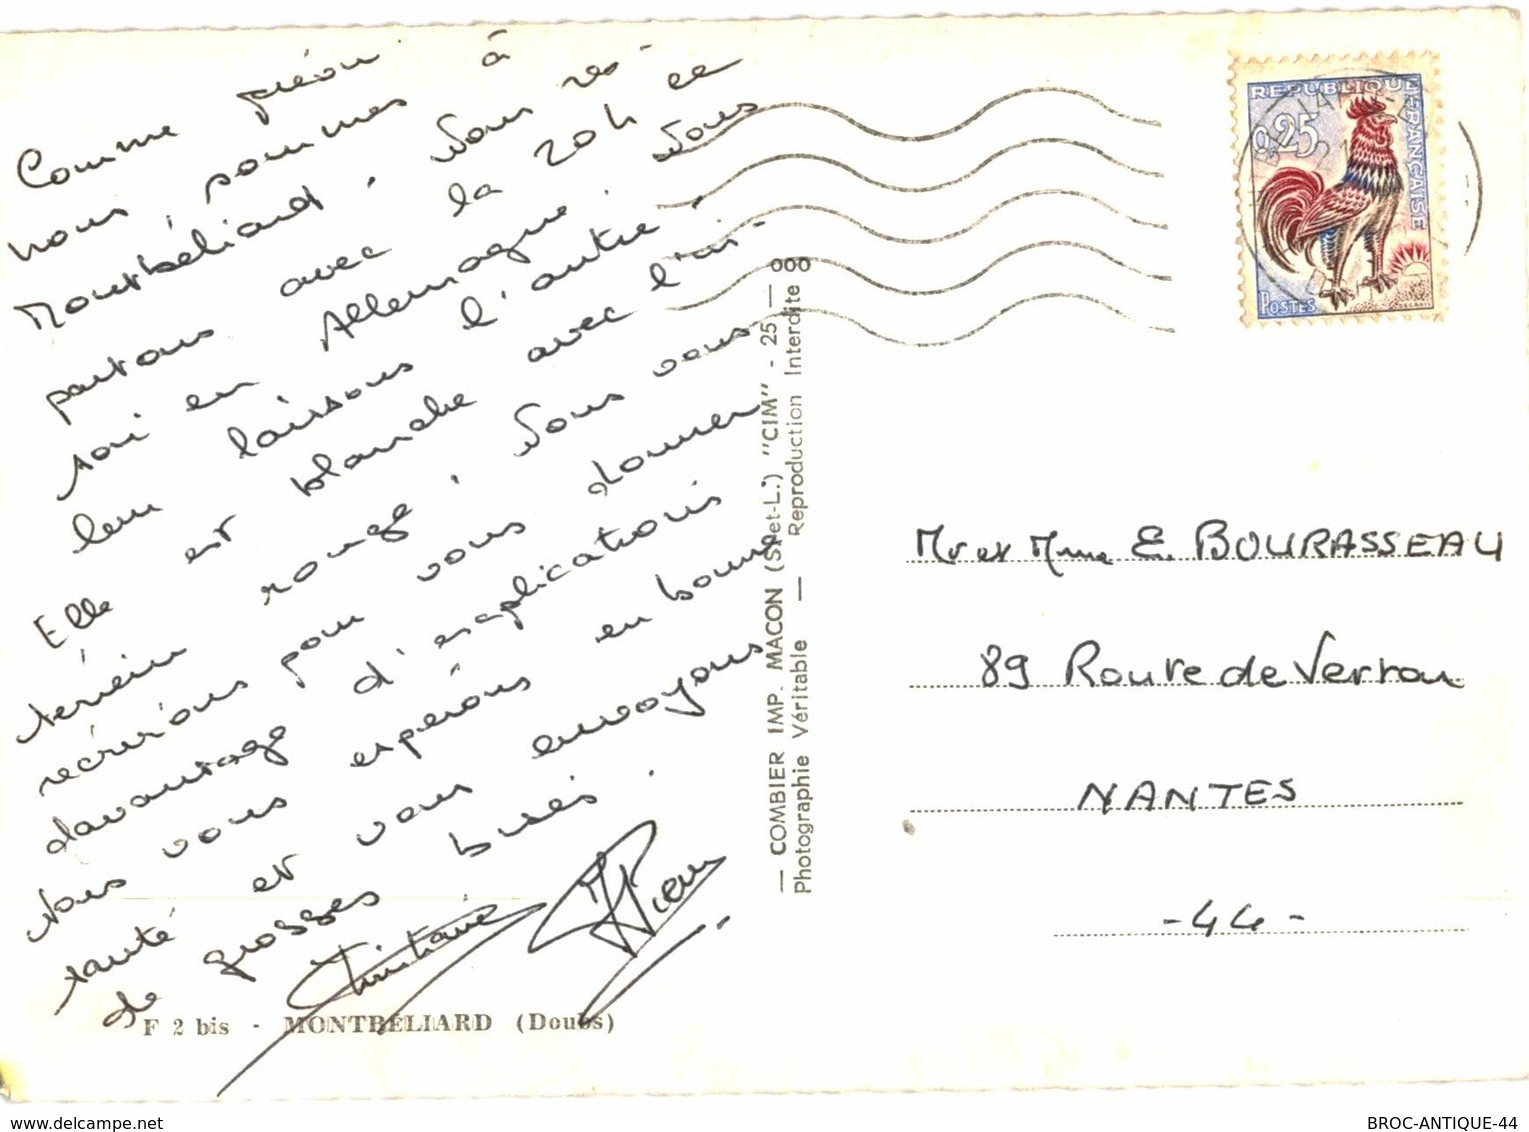 Comme prévu
nous sommes à
Montbéliard. Nous re-
partons avec la 204 ce
soir en Allemagne. Nous
leur laissons l'autre.
Elle est blanche avec l'in-
térieur rouge. Nous vous
récrirons pour vous donner
davantage d'explications
Nous vous espérons en bonne
santé et vous envoyons
de grosses bises.
Christiane JPierre
F 2 bis - MONTBÉLIARD (Doubs)
— COMBIER IMP. MACON (S.-et-L.) "CIM" - 25 — ooo
Photographie Véritable — Reproduction Interdite
REPUBLIQUE FRANÇAISE
0,25
POSTES
Mr et Mme E. BOURASSEAU
89 Route de Vertou
NANTES
- 44 -
delcampe.net
BROC-ANTIQUE-44